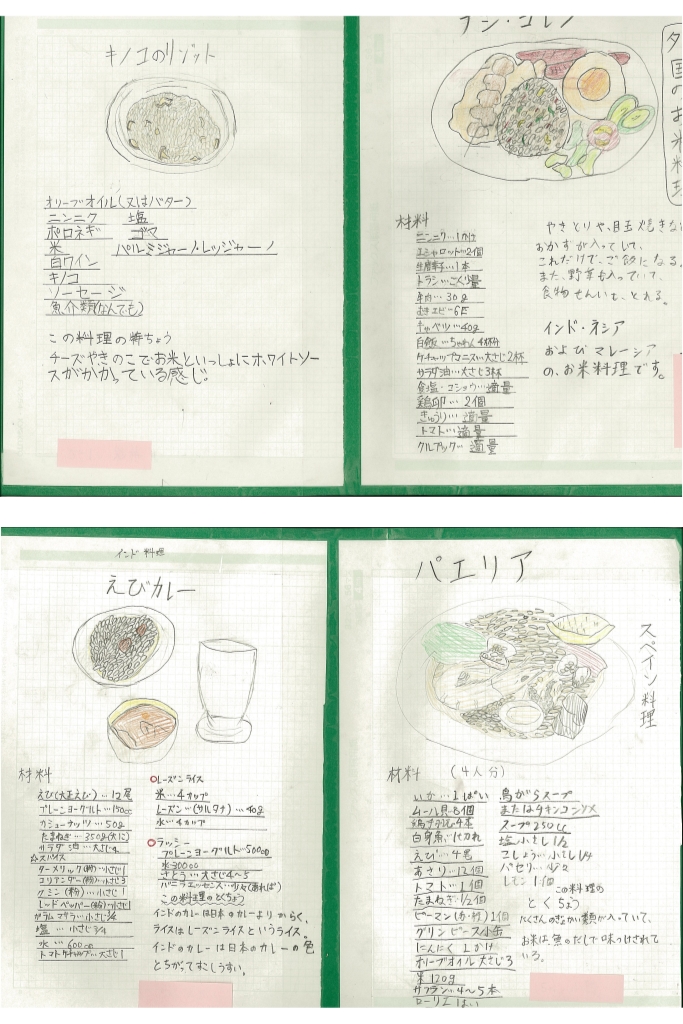 キノコのリゾット
オリーブオイル(又はバター)
ニンニク 塩
ポロネギ ゴマ
米 パルミジャーノ・レッジャーノ
白ワイン
キノコ
ソーセージ
魚介類(なんでも)
この料理の特ちょう
チーズやきのこでお米といっしょにホワイトソー
スがかかっている感じ。
ナシ・ゴレン
国のお米料理
材料
ニンニク…1かけ
エシャロット…2個
生唐辛子…1本
トラシ…ごく少量
牛肉…30g
むきエビ…6E
キャベツ…40g
白飯…ちゃわん4杯分
ケチャップマニス…大さじ2杯
サラダ油…大さじ3杯
食塩・コショウ…適量
鶏卵…2個
きゅうり…適量
トマト…適量
クルプック…適量
やきとりや、目玉焼きな
おかずが入っていて、
これだけで、ご飯になる。
また、野菜も入っていて、
食物せんいも、とれる。
インド・ネシア
および マレーシア
の、お米料理です。
インド料理
えびカレー
材料
えび(大正えび)…12尾
プレーンヨーグルト…150cc
カシューナッツ…50g
たまねぎ…350g(大1こ)
サラダ油…大さじ4
☆スパイス
ターメリック(粉)…小さじ1
コリアンダー(粉)…小さじ3
クミン(粉)…小さじ1
レッドペッパー(粉)…小さじ1
ガラムマサラ…小さじ1/2
塩…小さじ3/4
水…600cc
トマトケチャップ…大さじ1
レーズンライス
米…4カップ
レーズン(サルタナ)…40g
水…4カップ
ラッシー
プレーンヨーグルト…500cc
水300cc
さとう…大さじ4~5
バニラエッセンス…少々(あれば)
この料理のとくちょう
インドのカレーは日本のカレーよりからく、
ライスはレーズンライスというライス。
インドのカレーは日本のカレーの色
とちがってすこしうすい。
パエリア
スペイン料理
材料 (4人分)
いか…1ぱい
ムール貝…8個
鶏手羽元4本
白身魚…1切れ
えび…4尾
あさり…12個
トマト…1個
たまねぎ…1/2個
ピーマン(赤・緑)1個
グリンピース小缶
にんにく 1かけ
オリーブオイル 大さじ3
米 120g
サフラン…4~5本
ローリエ1まい
鳥がらスープ
またはチキンコンソメ
スープ250cc
塩小さじ1/2
こしょう…小さじ1/4
パセリ…少々
レモン1個
この料理の
とくちょう
たくさんのぎょかい類が入っていて、
お米は、魚のだしで味つけされて
いる。